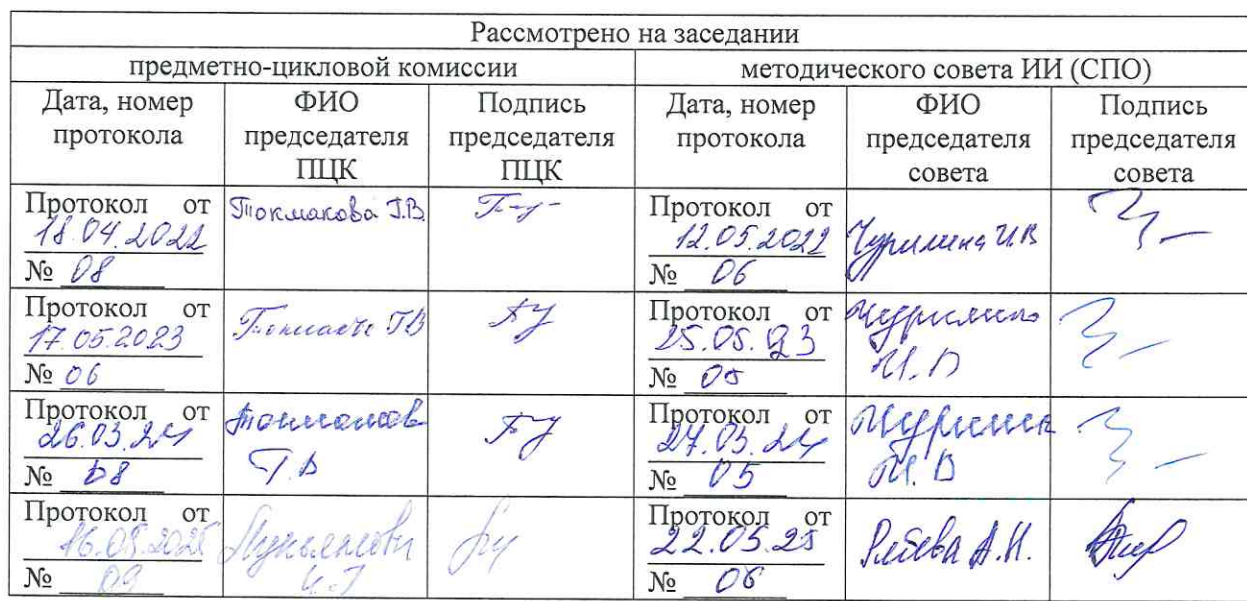 Рассмотрено на заседании
предметно-цикловой комиссии методического совета ИИ (СПО)
Дата, номер протокола ФИО председателя ПЦК Подпись председателя ПЦК Дата, номер протокола ФИО председателя совета Подпись председателя совета
Протокол от 18.04.2022 № 08 Токмакова Т.В. Протокол от 12.05.2022 № 06 Чурилина И.В
Протокол от 17.05.2023 № 06 Т.В Протокол от 25.05.23 № 05 И.В
Протокол от 26.03.24 № 08 Т.В Протокол от 27.03.24 № 05 И.В
Протокол от 16.05.2025 № 09 Протокол от 22.05.25 № 06 А.Н.